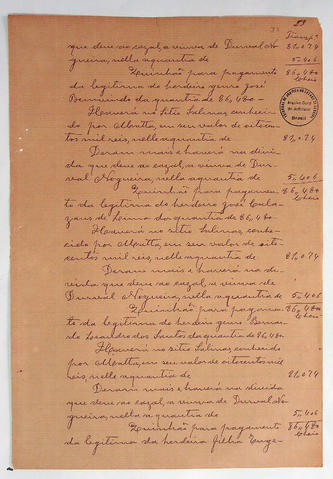 23
Transpe
que deve ao cazal, a viuva de Durval No- 81,074
gueira, nella a quantia de 5,406
Quinhão para pagamento 86,480
da legitima do herdeiro genro José
Bernuindo da quantia de 86,480
Haverá no sitio Salinas, conheci-
do por Mbutta, em seu valor de oitocen-
tos mil reis, nelle a quantia de 81,074
Deram mais e haverá na divi-
da que deve ao cazal, a viuva de Dur-
val Nogueira, nella a quantia de 5,406
Quinhão para pagamen- 86,480
to da legitima do herdeiro José
zans de da quantia de 86,480
Haverá no sitio Salinas, conhe-
cido por Mbutta, em seu valor de oito-
centos mil reis, nelle a quantia de 81,074
Deram mais e haverá na di-
vida que deve ao cazal, a viuva de
Durval Nogueira, nella a quantia de 5,406
Quinhão para pagamen- 86,480
to da legitima do herdeiro genro
do dos Santos da quantia de 86,480
Haverá no sitio Salinas conhecido
por Mbutta, em seu valor de oitocentos mil
reis, nelle a quantia de 81,074
Deram mais e haverá na divida
que deve ao cazal, a viuva de Durval No-
gueira, nella a quantia de 5,406
Quinhão para pagamento 86,480
da legitima da herdeira filha Euge-